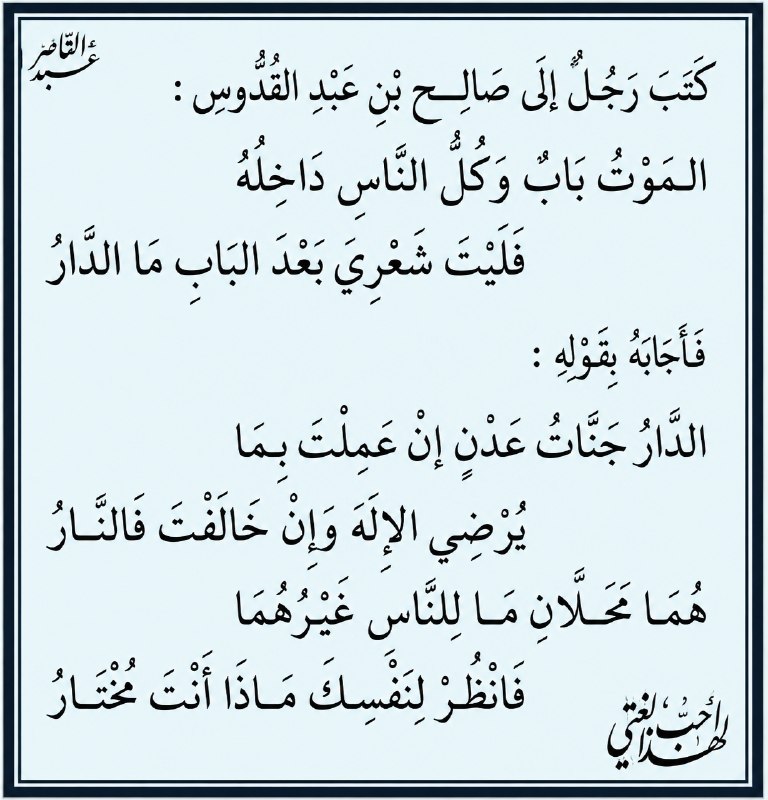 عبد القاصر
كَتَبَ رَجُلٌ إلَى صَالِـــح بْنِ عَبْدِ القُدُّوسِ :
الـمَوْتُ بَابٌ وَكُلُّ النَّاسِ دَاخِلُهُ
فَلَيْتَ شَعْرِيَ بَعْدَ البَابِ مَا الدَّارُ
فَأَجَابَهُ بِقَوْلِهِ :
الدَّارُ جَنَّاتُ عَدْنٍ إنْ عَمِلْتَ بِـمَا
يُرْضِي الإِلَهَ وَإِنْ خَالَفْتَ فَالنَّــارُ
هُمَـا مَحَــلَّانِ مَــا لِلنَّاسِ غَيْـرُهُمَا
فَانْظُـرْ لِنَفْسِـكَ مَـاذَا أَنْتَ مُخْتَــارُ
لهذا أحب لغتي